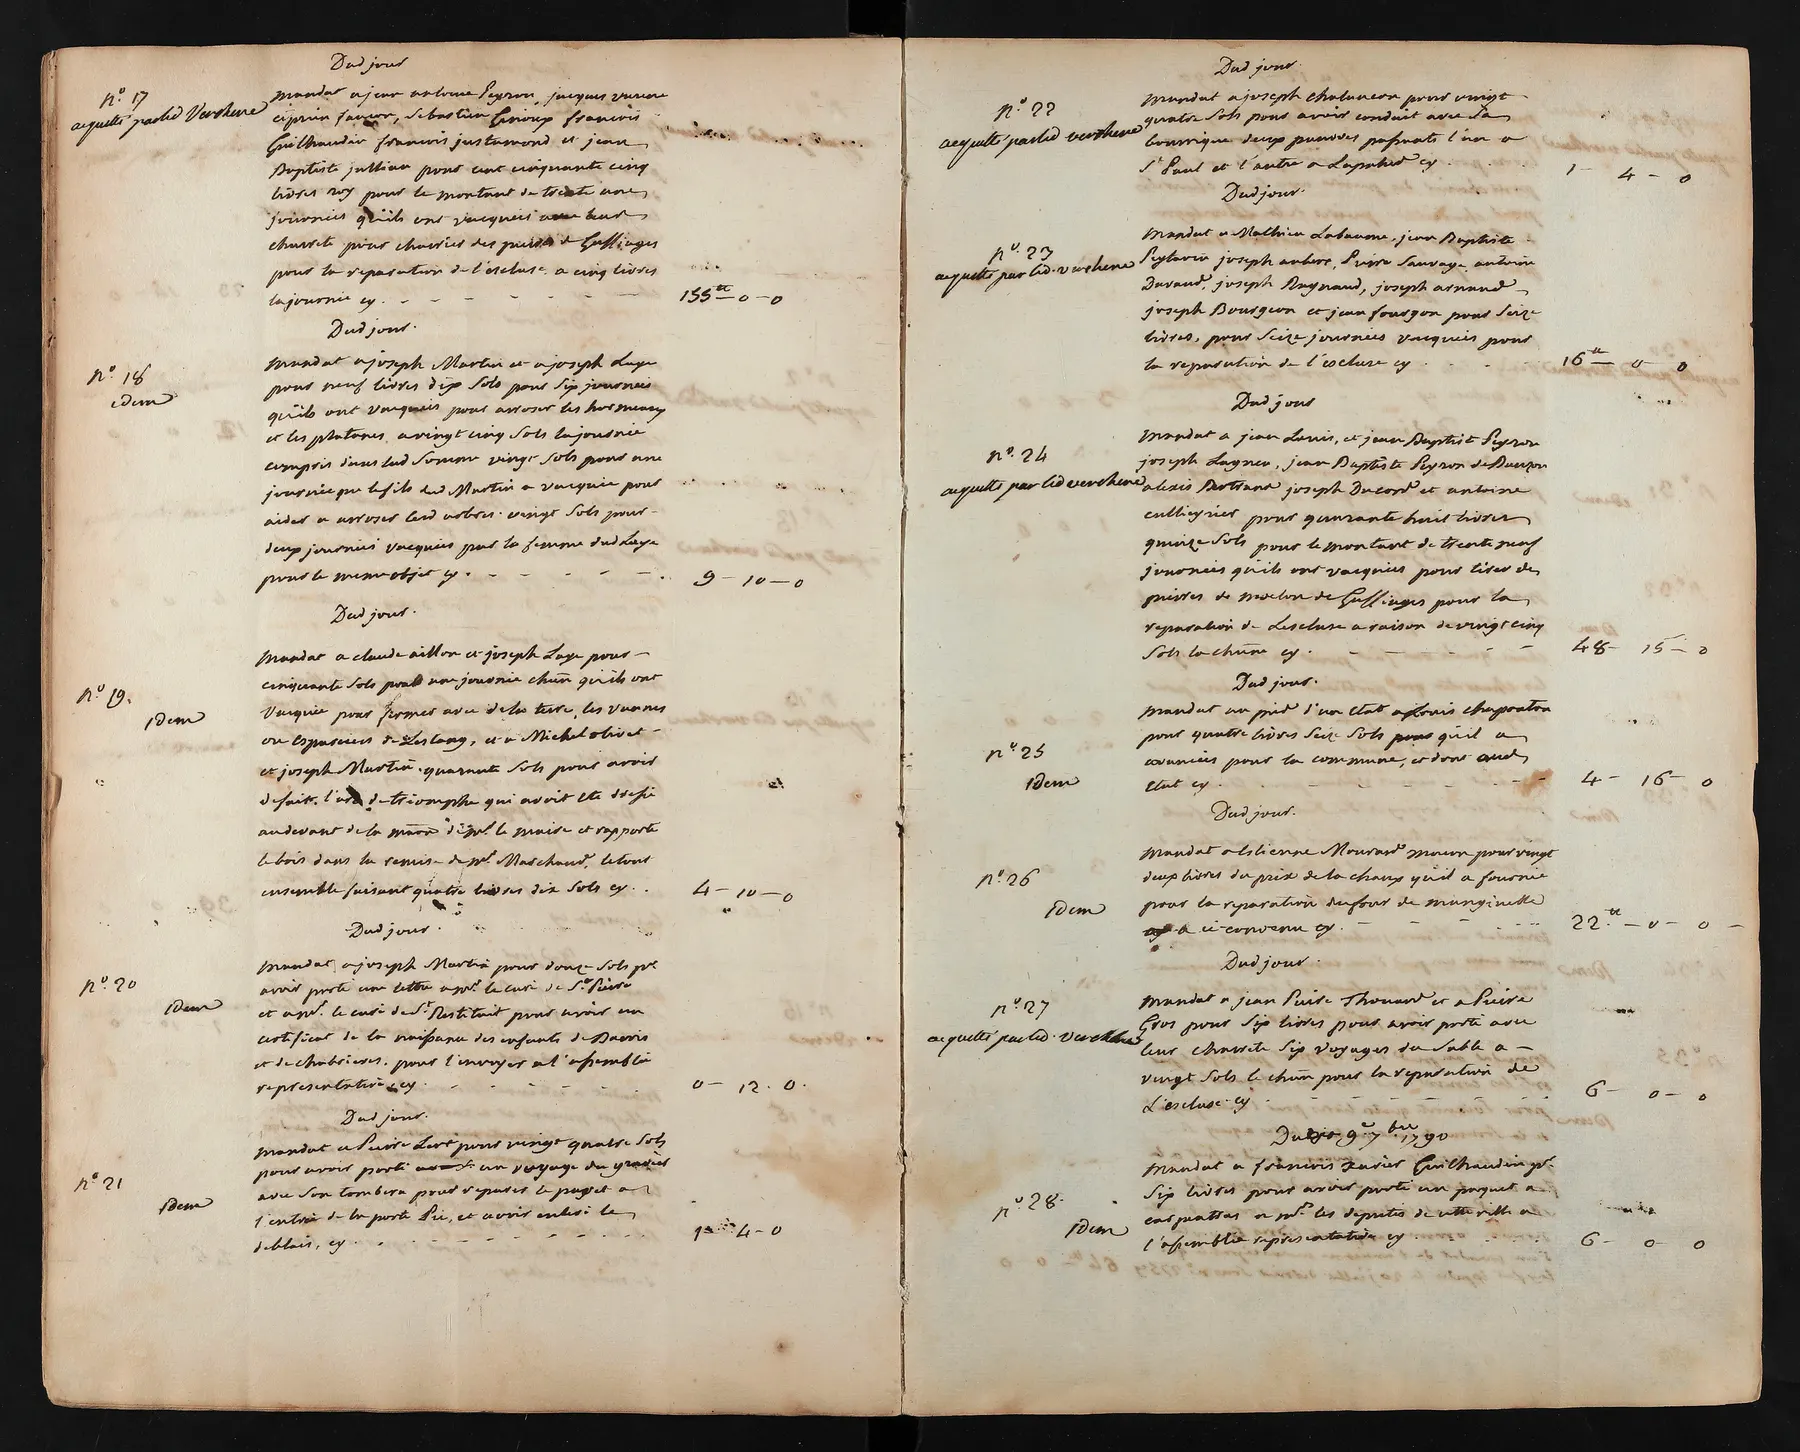 Dud jour
n.° 17
acquitté par led Verchere
Mandat a jean antoine Peyron, jacques
ciprien faucon, Sebastien Giroux francois
Guilhaudin francois justamond et jean
Baptiste jullian pour cent cinquante cinq
livres roy pour le montant de trente une
journées qu'ils ont vacquées avec leur
charrete pour charrier des pierres de
pour la reparation de l'escluse a cinq livres
la journée cy. - - - - - - 155tt - 0 - 0
Dud jour.
n.° 18
idem
Mandat a joseph Martin et a joseph Laye
pour neuf livres dix sols pour six journées
qu'ils ont vacquées pour arroser les hormeaux
et les platanes, a vingt cinq sols la journée
compris dans lad somme vingt sols pour une
journée que le fils dud Martin a vacquée pour
aider a arroser lesd arbres. vingt sols pour
deux journées vacquées par la femme dud Laye
pour le meme objet cy. - - - - - 9 - 10 - 0
Dud jour.
n.° 19.
idem
Mandat a claude aillon et joseph Laye pour
cinquante sols pour une journée chun qu'ils ont
Vacquée pour fermer avec de la terre, les vannes
ou espaciers de Lestang, et a Michel olivet
et joseph Martin. quarante sols pour avoir
defait l'arc de triomphe qui avoit été dressé
au devant de la de Mr. le maire et rapporté
le bois dans la remise de Mr. Marchand, le tout
ensemble faisant quatre livres dix sols cy. . 4 - 10 - 0
Dud jour.
n.° 20
idem
Mandat a joseph Martin pour douze sols pr.
avoir porté une lettre a Mr. le curé de St. Pierre
et a Mr. le curé de St. Restitut pour avoir un
certificat de la naissance des enfants de
et de chabrieres, pour l'envoyer a l'assemblée
representative cy. - - - - - 0 - 12 . 0.
Dud jour.
n.° 21
idem
Mandat a Pierre pour vingt quatre sols
pour avoir porté un voyage du gravier
avec son tombera pour reparer le a
l'entrée de la porte Pie, et avoir enlevé le
deblais, cy. - - - - - - - 1 - 4 - 0
Dud jour.
n.° 22
acquitté par led verchere
Mandat a joseph chalancon pour vingt
quatre sols pour avoir conduit avec sa
bourrique deux pauvres passants l'un a
St Paul et l'autre a Lapalud cy. . . 1 - 4 - 0
Dud jour.
n.° 23
acquitté par led. verchere
Mandat a Mathieu Labaume, jean Baptiste
joseph aubert, Pierre Sauvage, antoine
Durand, joseph Raynaud, joseph arnaud
joseph Bourgeon et jean fourgon pour seize
livres, pour seize journées vacquées pour
la reparation de l'escluse cy . . . 16tt - 0 - 0
Dud jour
n.° 24
acquitté par led verchere
Mandat a jean Louis, et jean Baptiste Peyron
joseph Lagnea, jean Baptiste Peyron de
alexis Bertrand joseph Ducord et antoine
pour quarante huit livres
quinze sols pour le montant de trente neuf
journées qu'ils ont vacquées pour tirer de
pierres de moelon de pour la
reparation de Lescluse a raison de vingt cinq
sols la chune cy. - - - - - 48 - 15 - 0
Dud jour.
n.° 25
idem
Mandat au pied d'un etat a Louis chaponton
pour quatre livres seize sols qu'il a
avancées pour la commune, et dont aud
etat cy. - - - - - - 4 - 16 - 0
Dud jour.
n.° 26
idem
Mandat a Estienne Mourard macon pour vingt
deux livres du prix de la chaux qu'il a fournie
pour la reparation du four de
a ce convenu cy. - - - - 22.tt - 0 - 0 -
Dud jour.
n.° 27
acquitté par led. verchere
Mandat a jean Pierre Thouard et a Pierre
Gros pour six livres pour avoir porté avec
leur charrete six voyages du sable a
vingt sols le chun pour la reparation de
L'escluse. cy - - - - - 6 - 0 - 0
Dudit 9.e 7.bre 1790
n.° 28.
idem
Mandat a francois xavier Guilhaudin pr.
six livres pour avoir porté un paquet a
carpantras a Mrs. les deputés de cette ville a
l'assemblée representative cy . . . 6 - 0 - 0